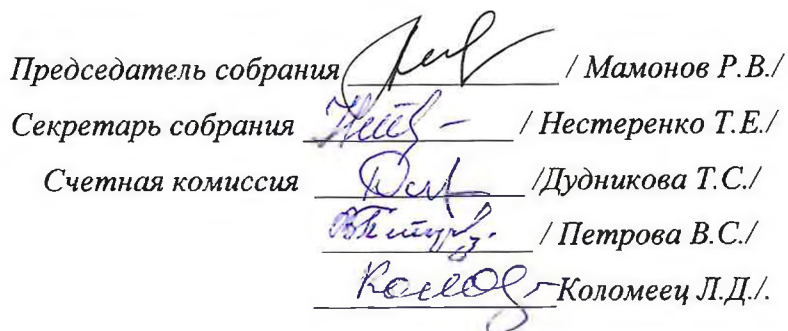 Председатель собрания / Мамонов Р.В./
Секретарь собрания / Нестеренко Т.Е./
Счетная комиссия /Дудникова Т.С./
/ Петрова В.С./
Коломеец Л.Д./.